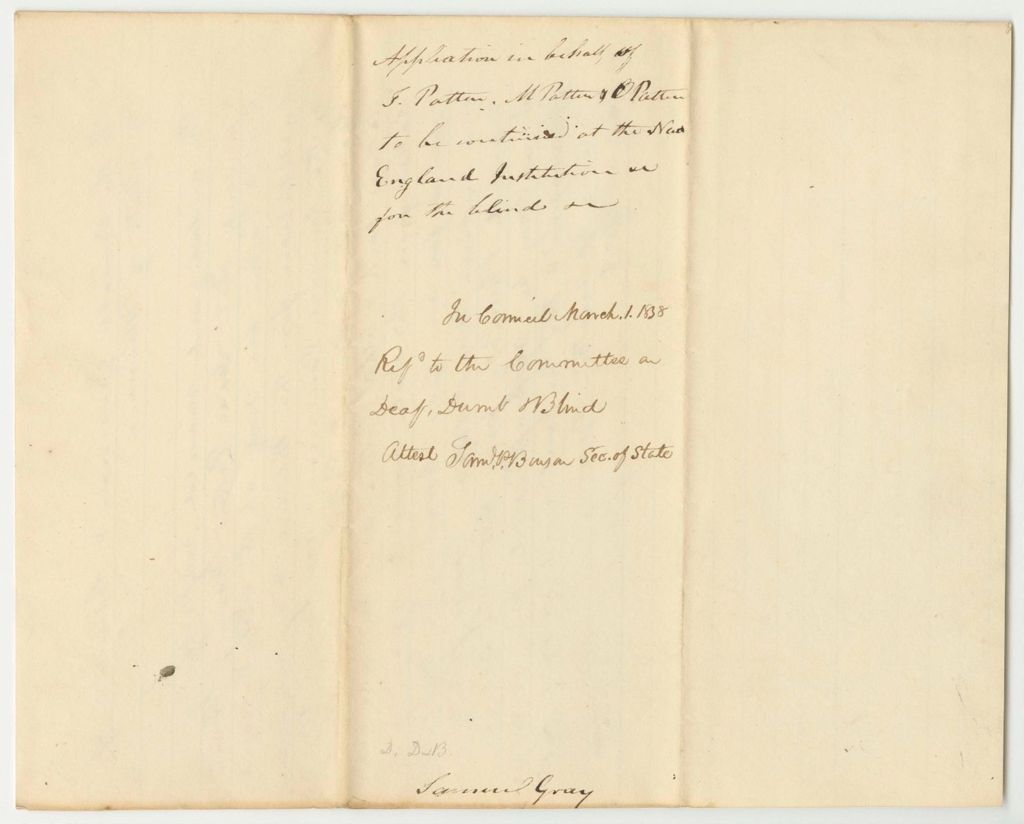 Appliation in behalf of
J. Patten, M Patten & O Patten
to be continued at the New
England Institution &c
for the blind &c
In Council March. 1. 1838
Refd to the Committee on
Deaf, Dumb & Blind
Attest Saml. P. Benson Sec. of State
D. D & B.
Samuel Gray